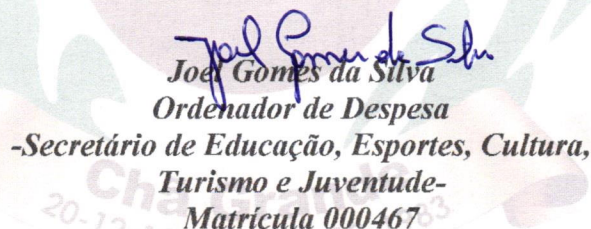 Joel Gomes da Silva
Joel Gomes da Silva
Ordenador de Despesa
-Secretário de Educação, Esportes, Cultura,
Turismo e Juventude-
Chã Grande
Matrícula 000467